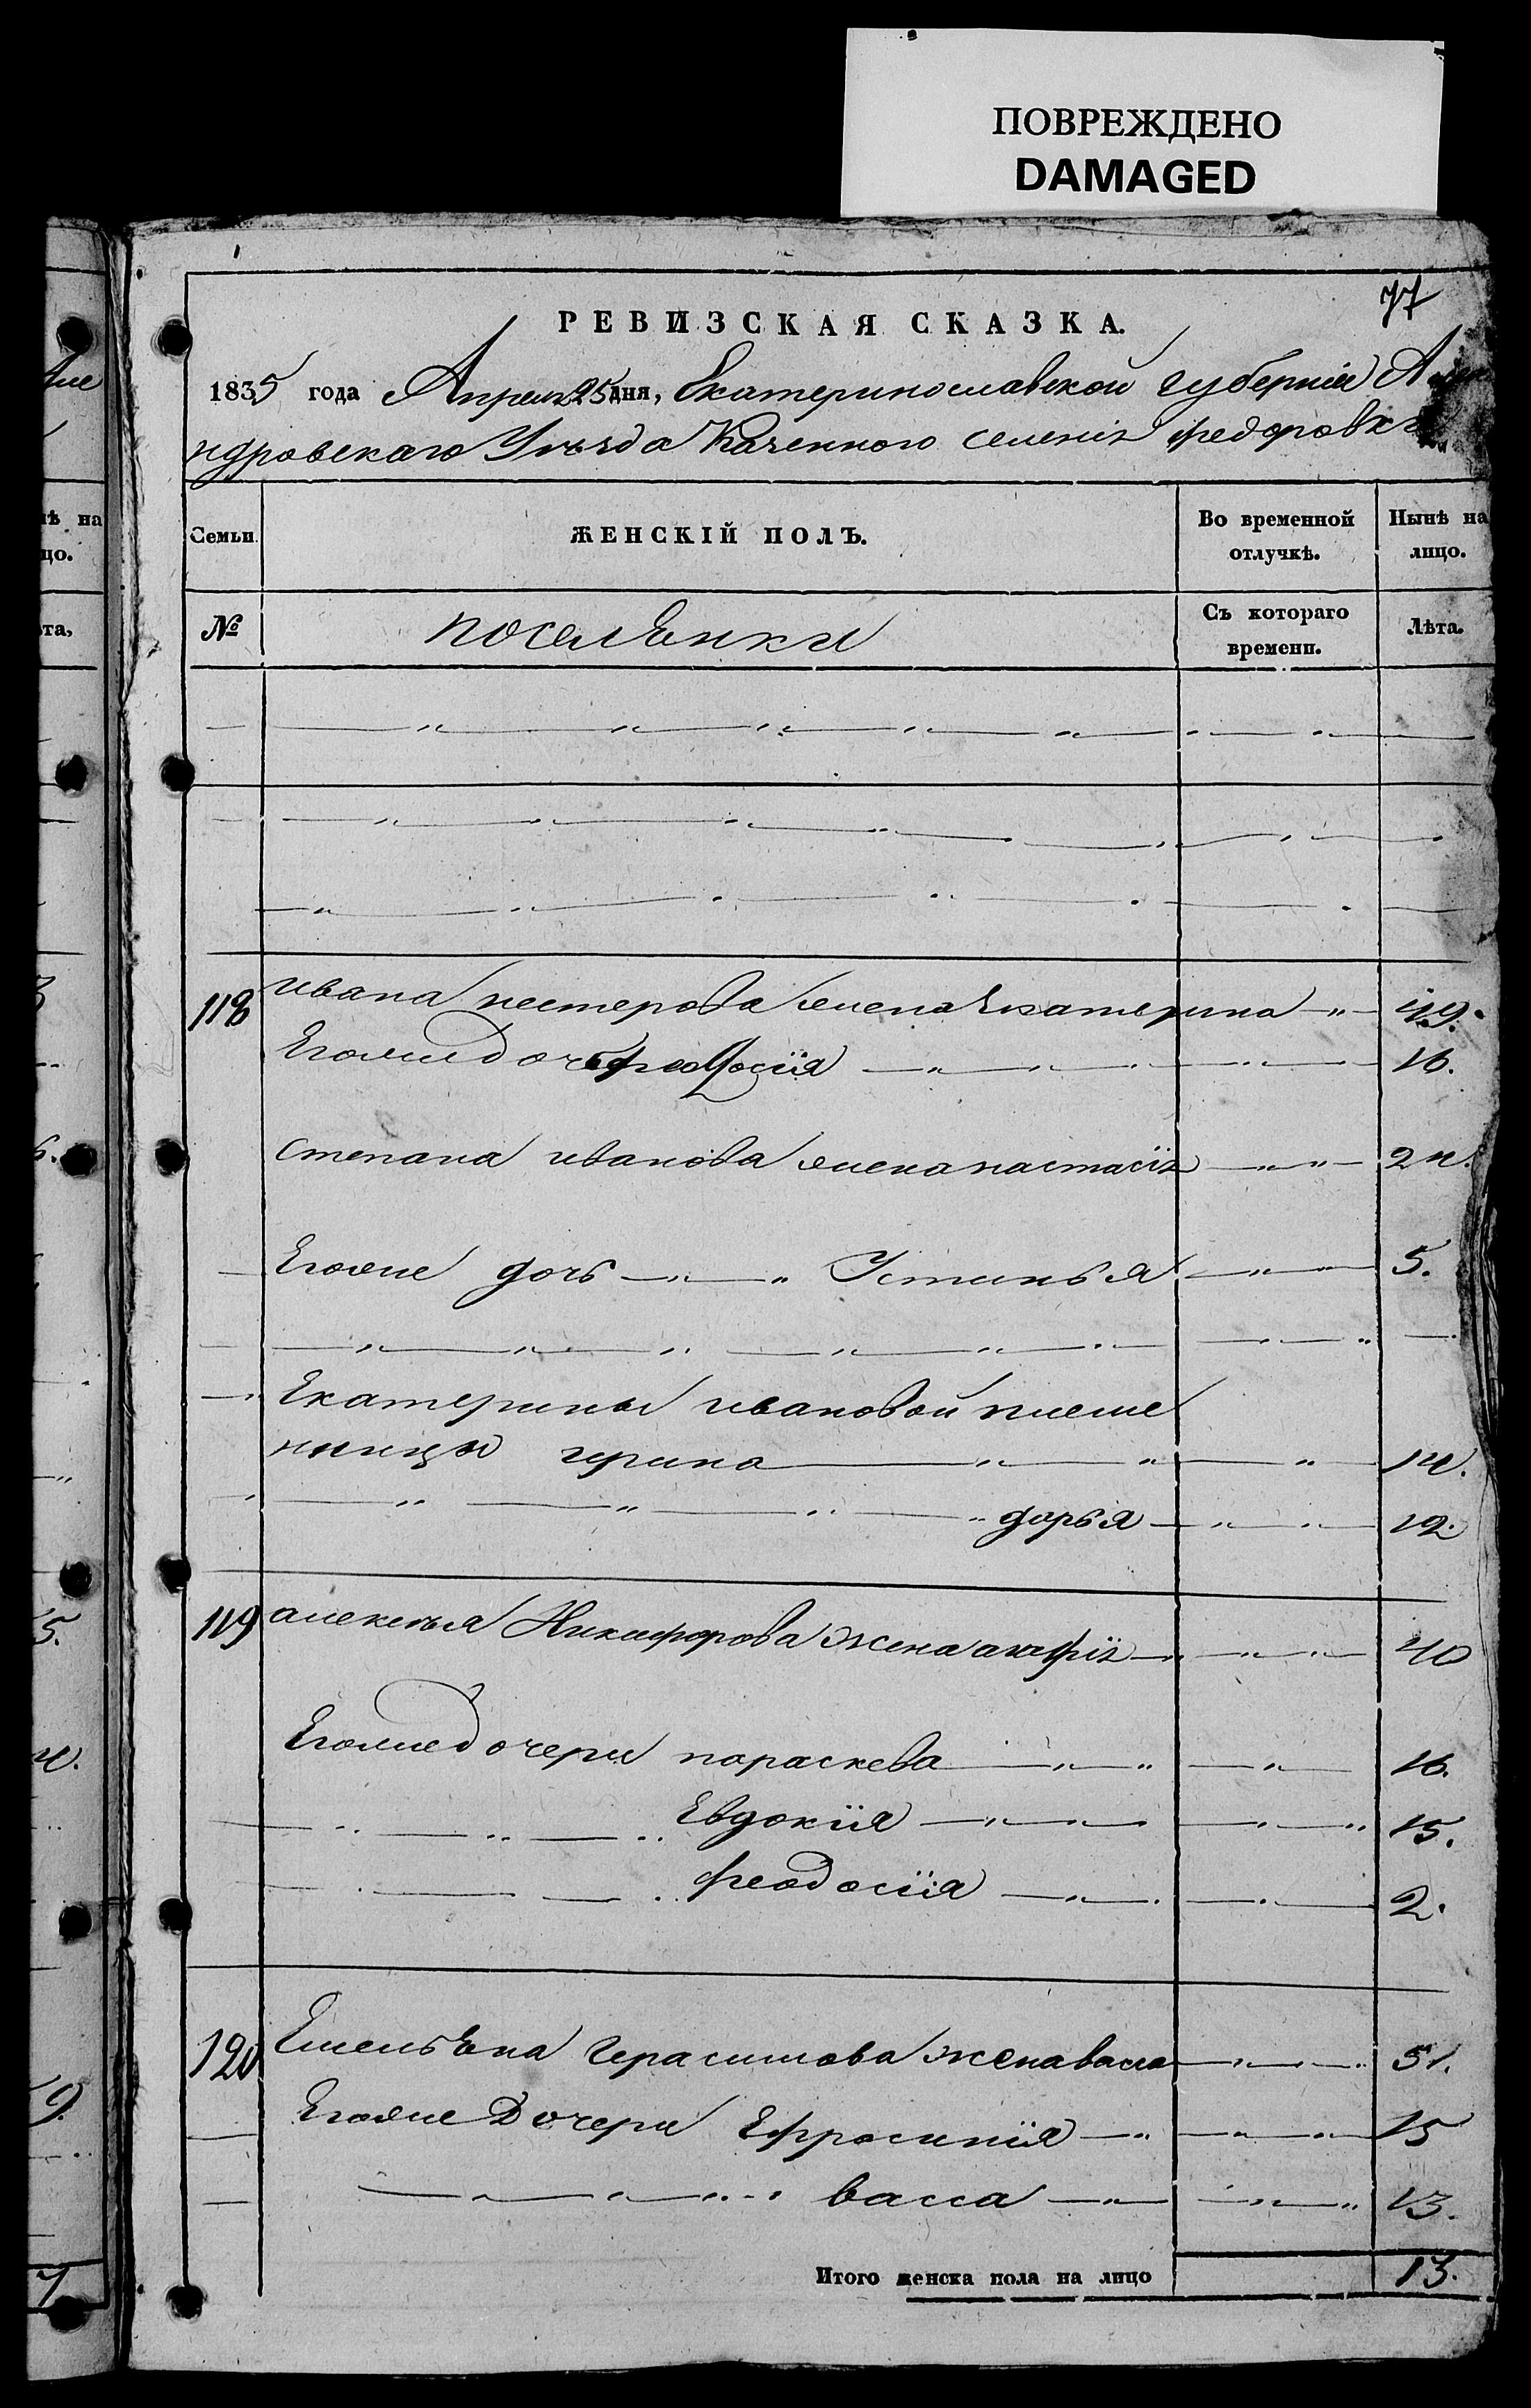 ПОВРЕЖДЕНО
DAMAGED
77
РЕВИЗСКАЯ СКАЗКА.
1835 года Апреля 25 дня, Екатеринославской губернiи
ндровскаго Уѣзда Казенного селенiя федоровк
Семьи. ЖЕНСКІЙ ПОЛЪ. Во временной отлучкѣ. Нынѣ на лицо.
№ поселѣнки Съ котораго времени. Лѣта.
118 ивана нестерова жена Екатерина 49.
Егоже дочь феодосiя 16.
степана иванова жена настасiя 24.
Егоже дочь Устинья 5.
Екатерины ивановой племе
нницы 14.
дорья 12.
119 алексѣя Никифорова жена агафiя 40
Егоже дочери параскева 16.
Евдокiя 15.
феодосiя 2.
120 Емельяна Герасимова жена васса 51.
Егоже Дочери Ефросинiя 15
васса 13.
Итого женска пола на лицо 13.